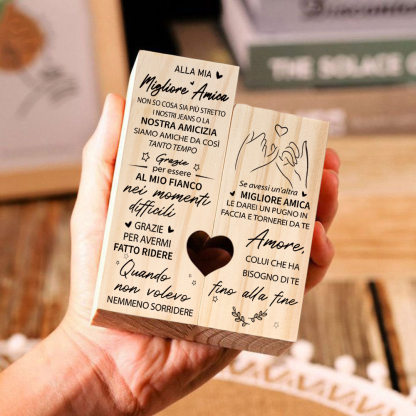 ALLA MIA
Migliore Amica
NON SO COSA SIA PIÙ STRETTO
I NOSTRI JEANS O LA
NOSTRA AMICIZIA
SIAMO AMICHE DA COSÌ
TANTO TEMPO
Grazie
per essere
AL MIO FIANCO
nei momenti
difficili
GRAZIE
PER AVERMI
FATTO RIDERE
Quando
non volevo
NEMMENO SORRIDERE
Se avessi un'altra
MIGLIORE AMICA
LE DAREI UN PUGNO IN
FACCIA E TORNEREI DA TE
Amore,
COLUI CHE HA
BISOGNO DI TE
fino alla fine
THE SOLACE O